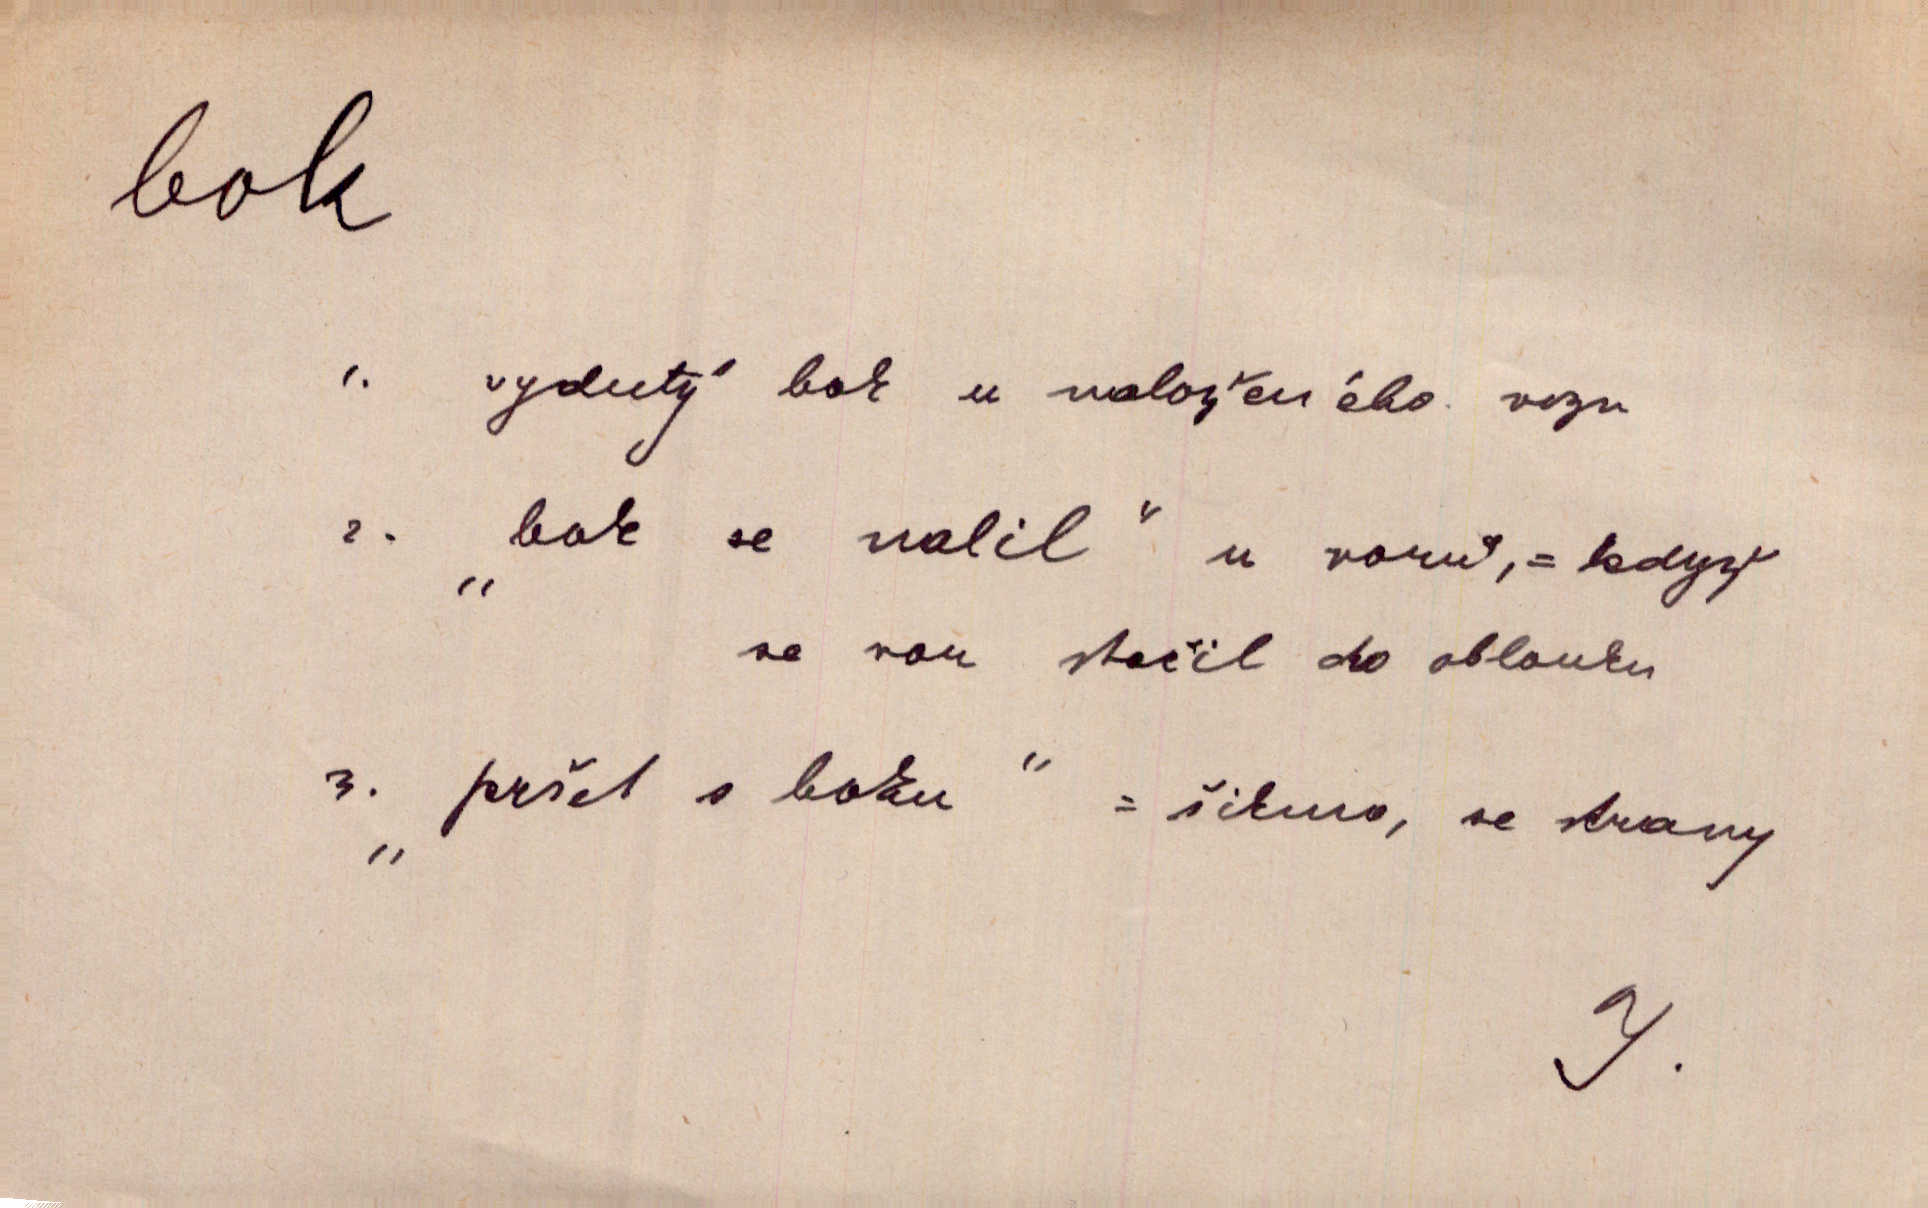 bok
1. vydutý bok u naloženého vozu
2. „bok se nalil" u vorů, = když
se vor stočil do oblouku
3. „pršet s boku" = šikmo, se strany